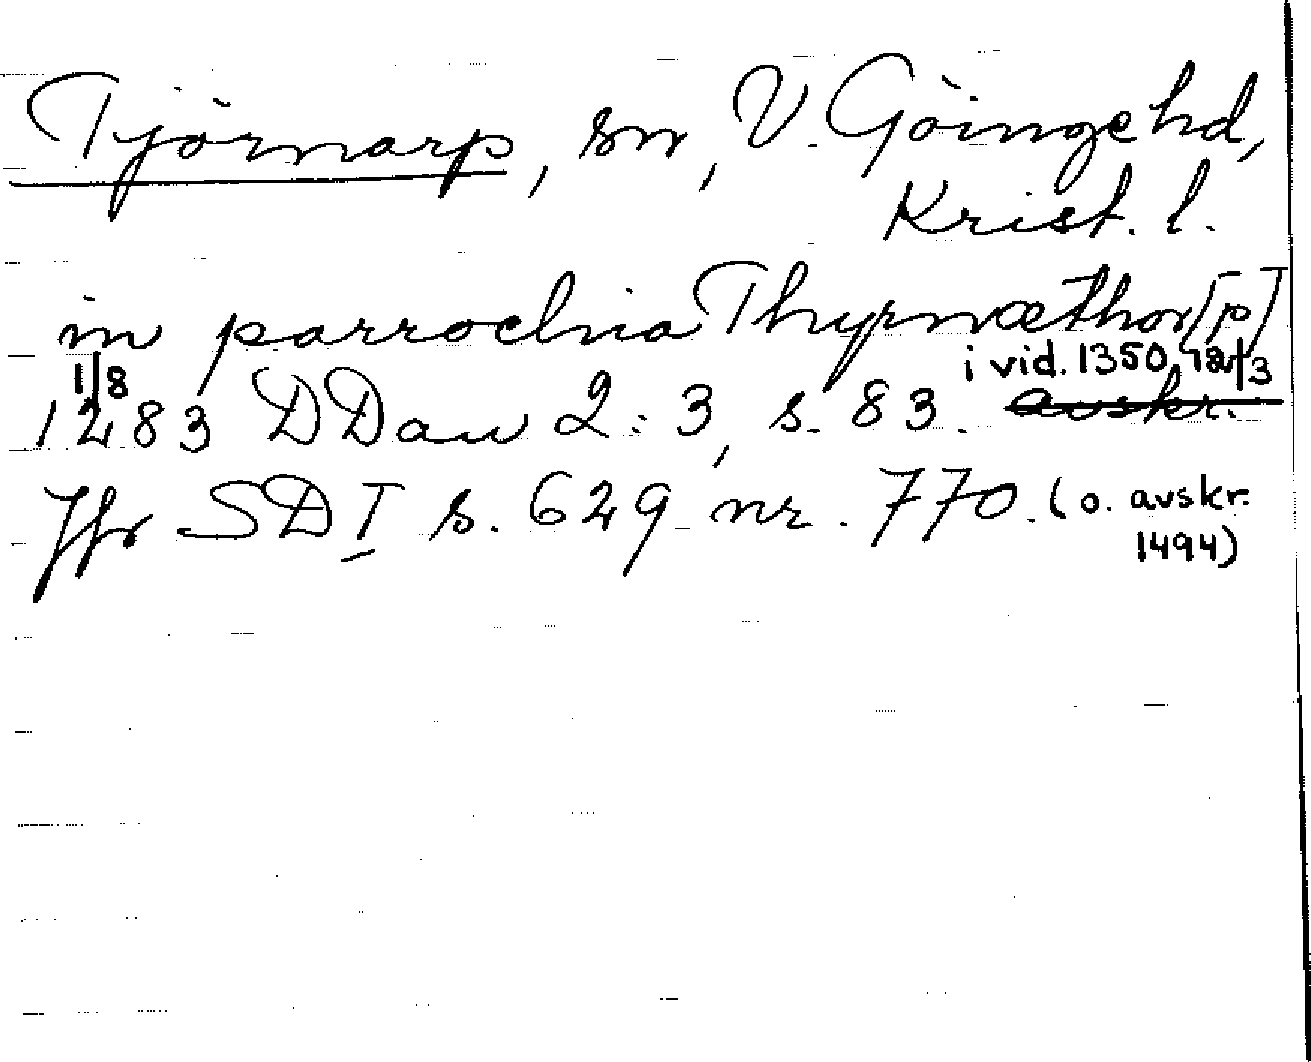 Tjörnarp, sn, V. Göingehd,
Krist. l.
in parrochia Thyrnæthor[p]
1/8 i vid. 1350
1283 DDan 2:3, s. 83. avskr.
Jfr SD I s. 629 nr. 770. (o. avskr.
1494)